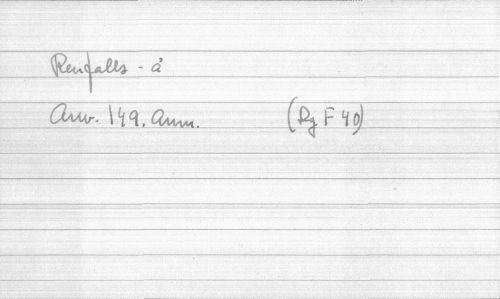 Renfalls - å
Arw. 149. Anm. (Rg F 40)